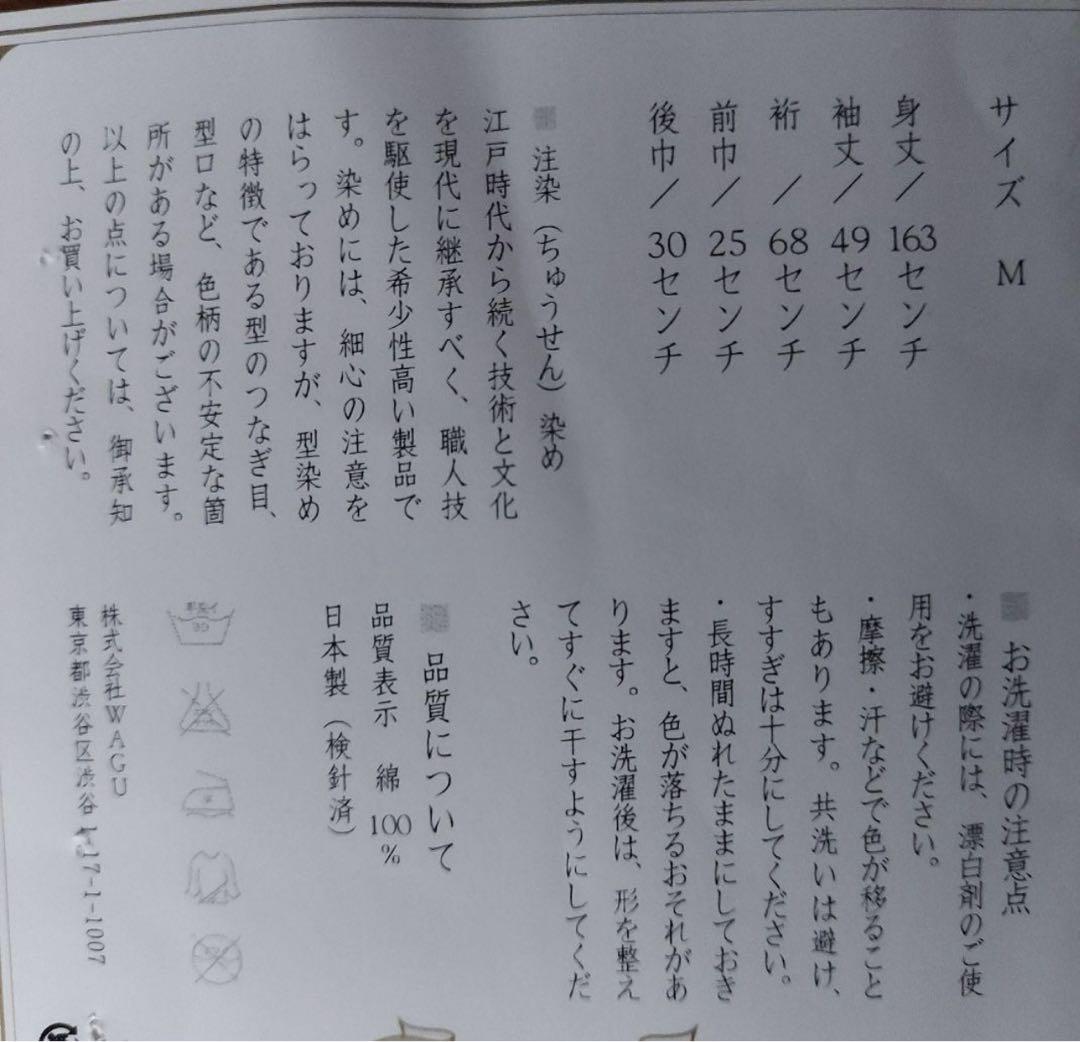 サイズ M
身丈/163センチ
袖丈/49センチ
裄 /68センチ
前巾/25センチ
後巾/30センチ
注染(ちゅうせん)染め
江戸時代から続く技術と文化
を現代に継承すべく、職人技
を駆使した希少性高い製品で
す。染めには、細心の注意を
はらっておりますが、型染め
の特徴である型のつなぎ目、
型口など、色柄の不安定な箇
所がある場合がございます。
以上の点については、御承知
の上、お買い上げください。
お洗濯時の注意点
・洗濯の際には、漂白剤のご使
用をお避けください。
・摩擦・汗などで色が移ること
もあります。共洗いは避け、
すすぎは十分にしてください。
・長時間ぬれたままにしておき
ますと、色が落ちるおそれがあ
ります。お洗濯後は、形を整え
てすぐに干すようにしてくだ
さい。
品質について
品質表示 綿100%
日本製(検針済)
株式会社WAGU
東京都渋谷区渋谷1-17-1-1007